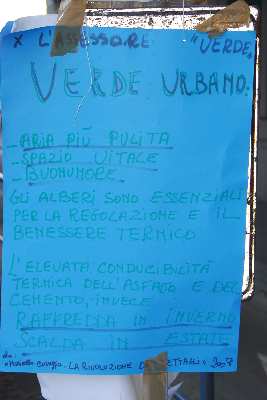 X L'ASSESSORE "VERDE"
VERDE URBANO:
- ARIA PIÙ PULITA
- SPAZIO VITALE
- BUONUMORE
GLI ALBERI SONO ESSENZIALI
PER LA REGOLAZIONE E IL
BENESSERE TERMICO
L'ELEVATA CONDUCIBILITÀ
TERMICA DELL'ASFALTO E DEL
CEMENTO, INVECE
RAFFREDDA IN INVERNO
SCALDA IN ESTATE
da:
LA RIVOLUZIONE DEI DETTAGLI" 2007